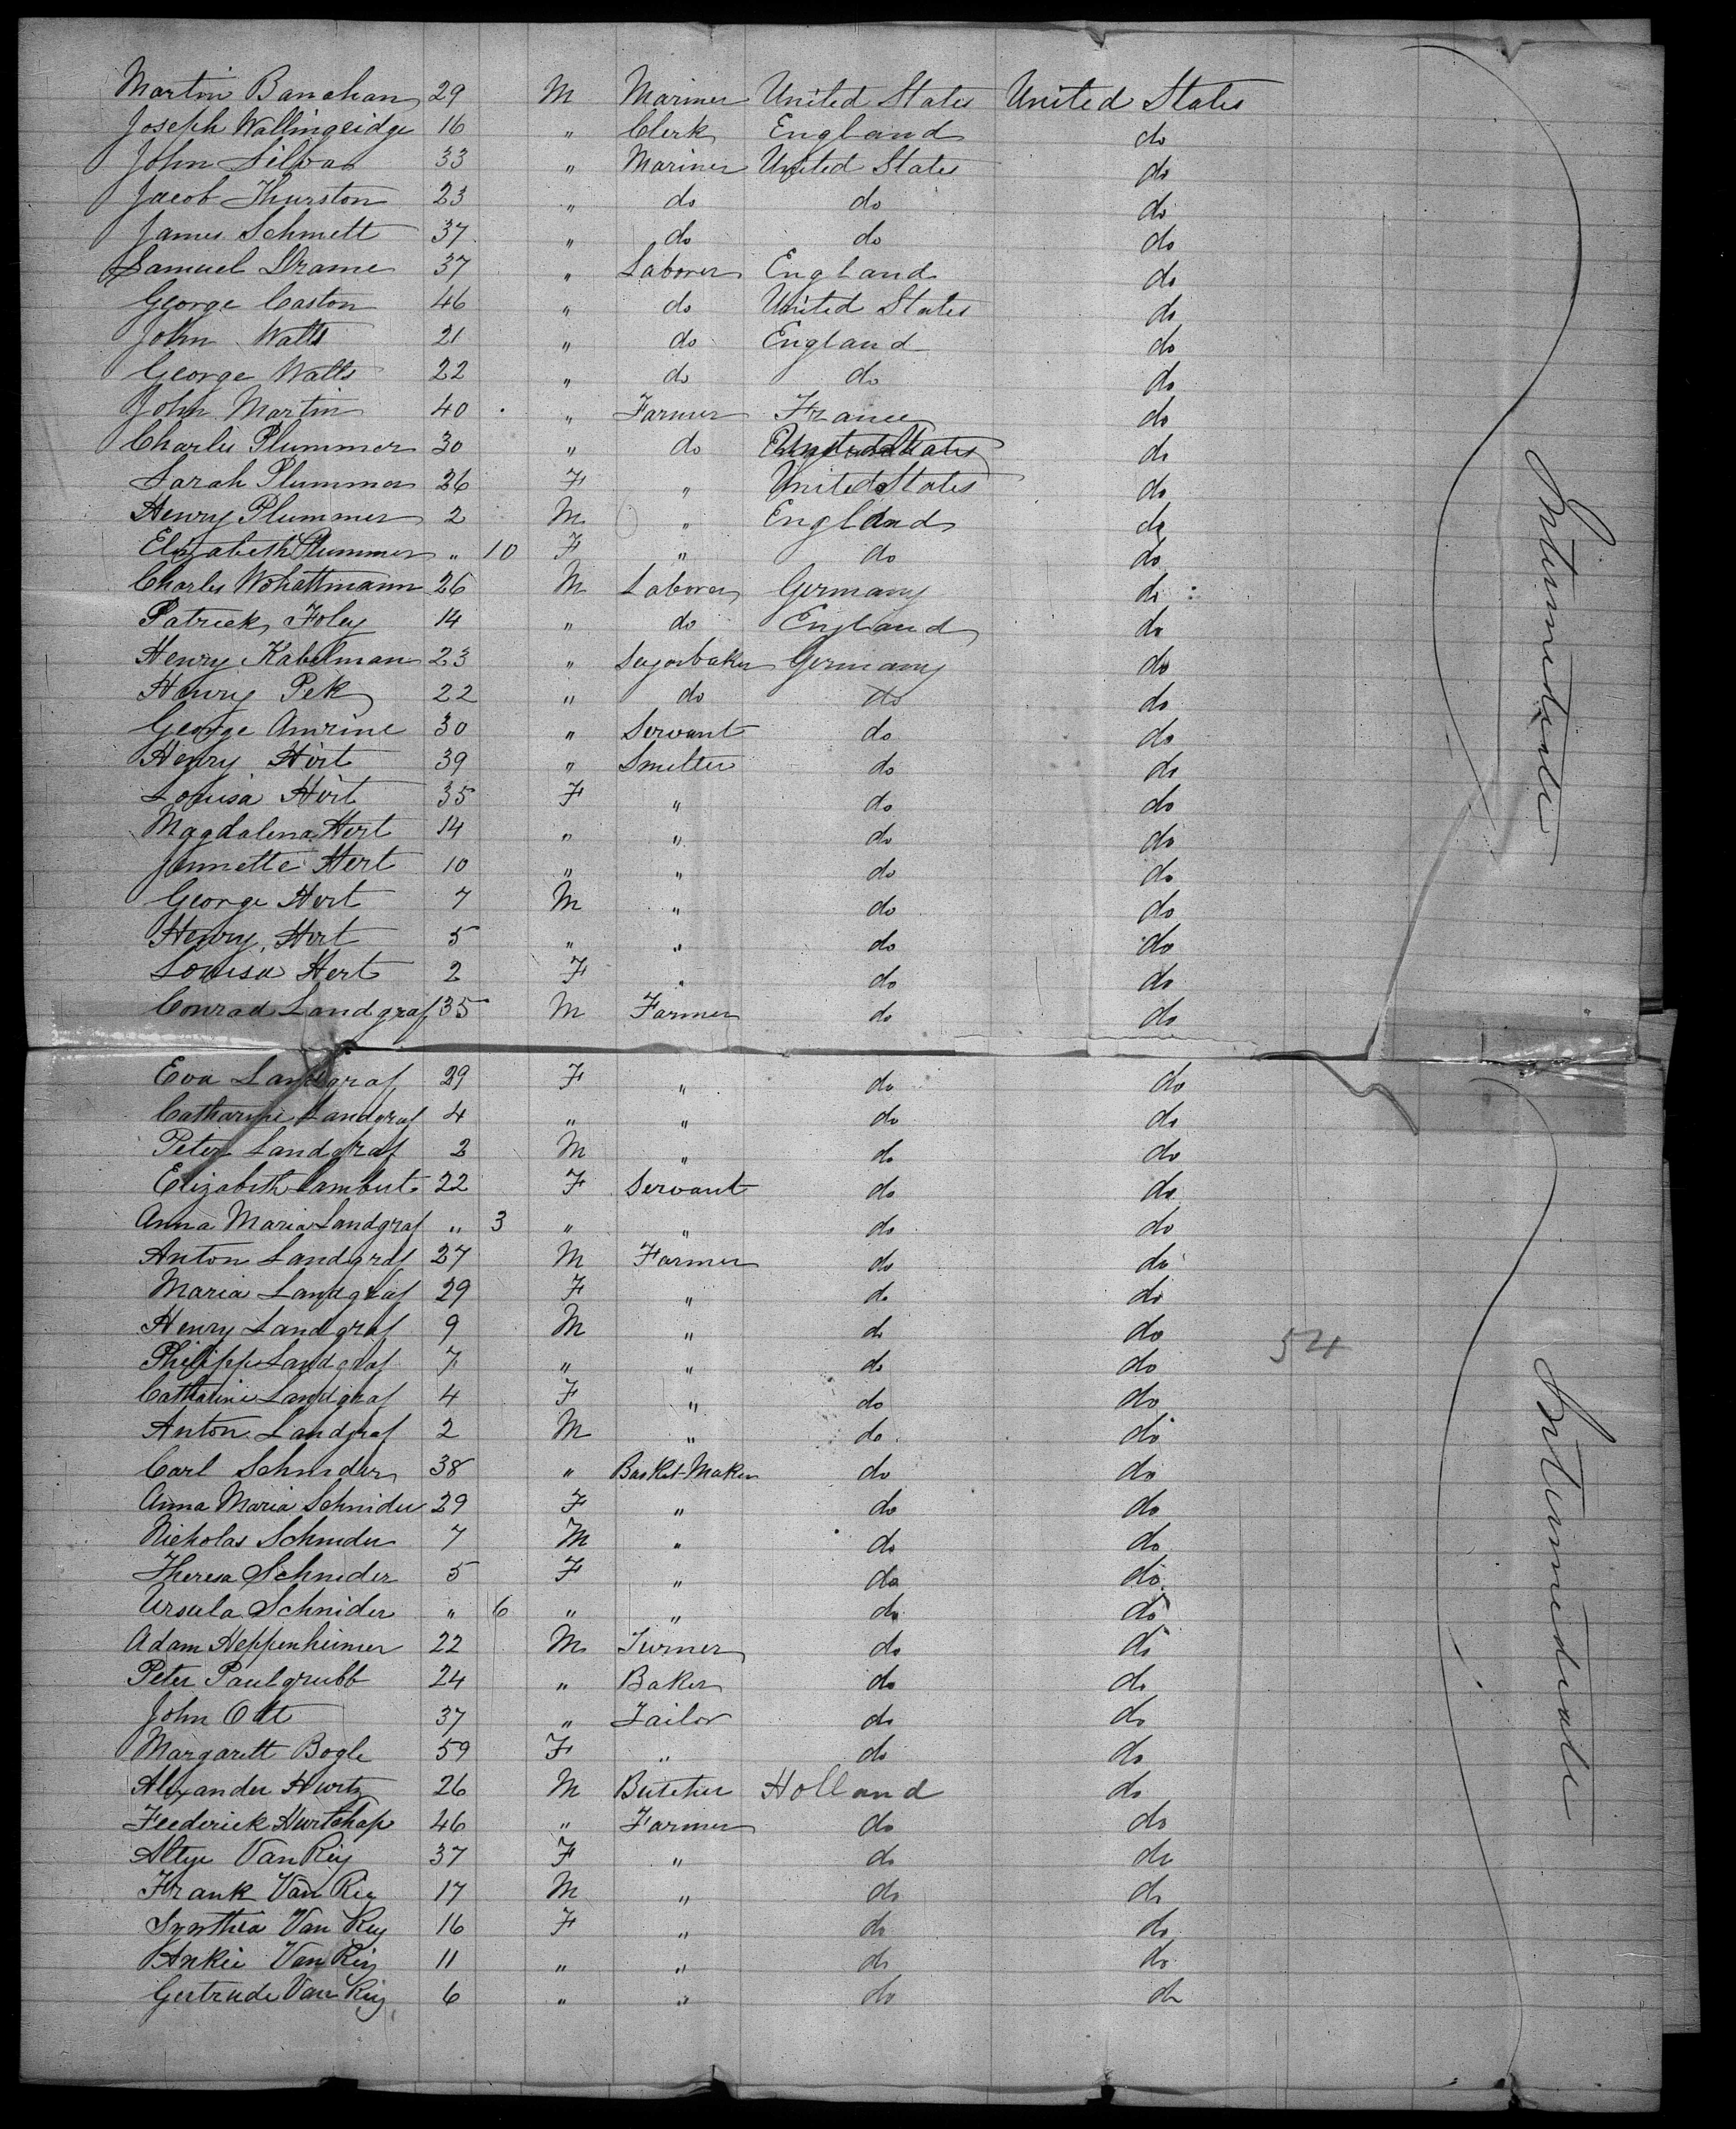 Martin Banahan 29 M Mariner United States United States
Joseph Wallingridge 16 " Clerk England do
John Silva 33 " Mariner United States do
Jacob Thurston 23 " do do do
James Schmett 37 " do do do
Samuel Drame 37 " Laborer England do
George Caston 46 " do United States do
John Watts 21 " do England do
George Watts 22 " do do do
John Martin 40 " Farmer France do
Charles Plummer 30 " do United States do
Sarah Plummer 26 F " United States do
Henry Plummer 2 M " England do
Elizabeth Plummer " 10 F " do do
Charles Wohattmann 26 M Laborer Germany do
Patrick Foley 14 " do England do
Henry Kabelman 23 " Sugarbaker Germany do
Henry Pek 22 " do do do
George Amrine 30 " Servant do do
Henry Hirt 39 " Smelter do do
Louisa Hirt 35 F " do do
Magdalena Hert 14 " " do do
Jennette Hert 10 " " do do
George Hert 7 M " do do
Henry Hert 5 " " do do
Louisa Hert 2 F " do do
Conrad Landgraf 35 M Farmer do do
Eva Landgraf 29 F " do do
Catharine Landgraf 4 " " do do
Peter Landgraf 2 M " do do
Elizabeth Lambert 22 F Servant do do
Anna Maria Landgraf " 3 " " do do
Anton Landgraf 27 M Farmer do do
Maria Landgraf 29 F " do do
Henry Landgraf 9 M " do do
Philipp Landgraf 7 " " do do
54
Catharine Landgraf 4 F " do do
Anton Landgraf 2 M " do do
Carl Schnider 38 " Basket-Maker do do
Anna Maria Schnider 29 F " do do
Nicholas Schnider 7 M " do do
Theresa Schnider 5 F " do do
Ursula Schnider " 6 " " do do
Adam Heppenheimer 22 M Turner do do
Peter Paulgrubb 24 " Baker do do
John Ott 37 " Tailor do do
Margarett Bogle 59 F " do do
Alexander Hurtz 26 M Butcher Holland do
Frederick Hurtchap 46 " Farmer do do
Altje Van Rij 37 F " do do
Frank Van Rij 17 M " do do
Synthia Van Rij 16 F " do do
Ankie Van Rij 11 " " do do
Gertrude Van Rij 6 " " do do
Intermediate
Intermediate